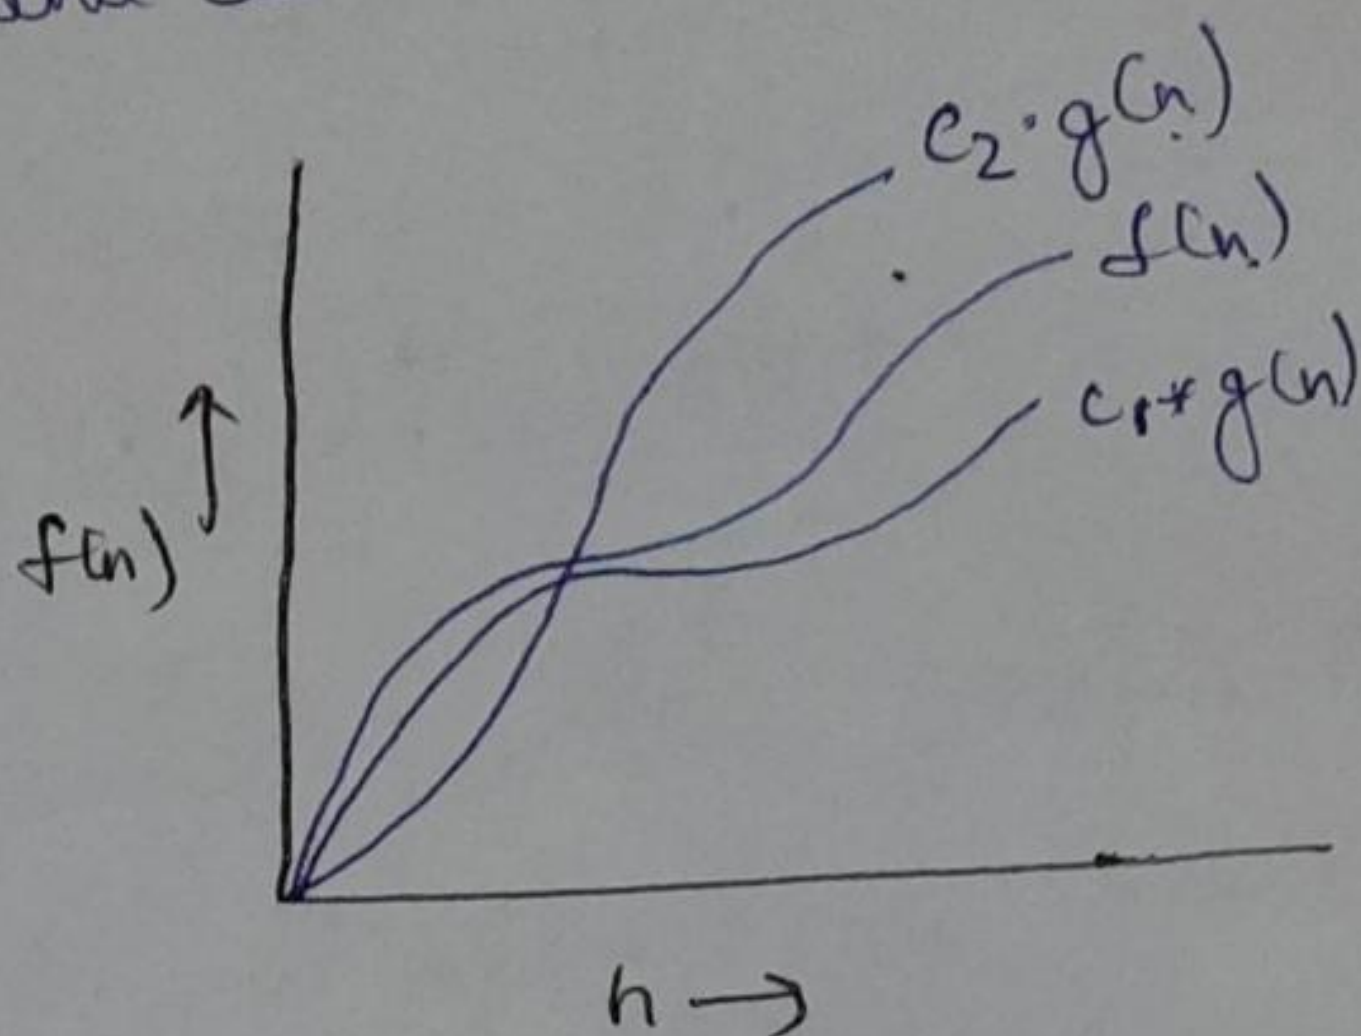 c₂·g(n)
f(n)
c₁*g(n)
f(n)
n